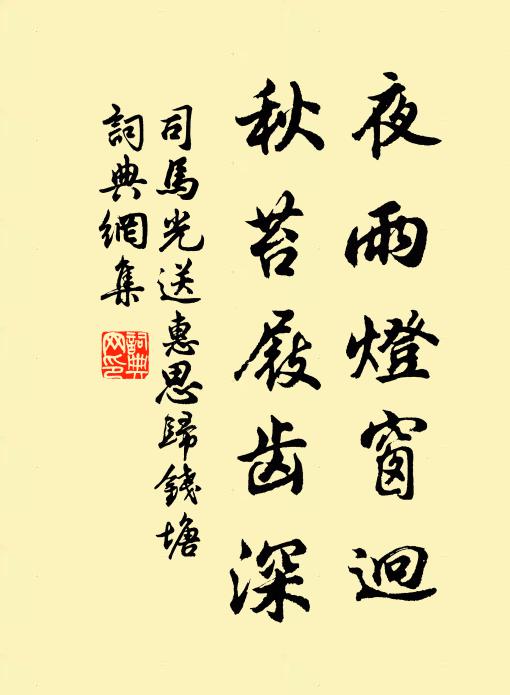 夜雨燈窗迥
秋苔屐齿深
司馬光送惠思歸錢塘
詞典網集
詞典網印